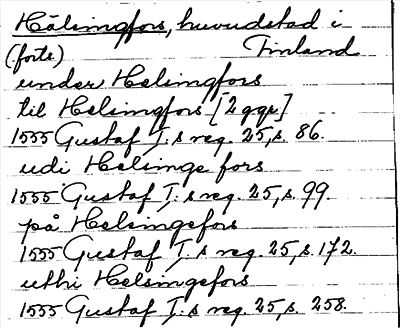 Hälsingfors, huvudstad i
(forts) Finland
under Helsingfors
til Helsingfors [2 ggr]
1555 Gustaf I.s reg. 25, s. 86.
udi Helsinge fors
1555 Gustaf I.s reg. 25, s. 99.
på Helsingefors
1555 Gustaf I.s reg. 25, s. 172.
uthi Helsingefors
1555 Gustaf I.s reg. 25, s. 258.